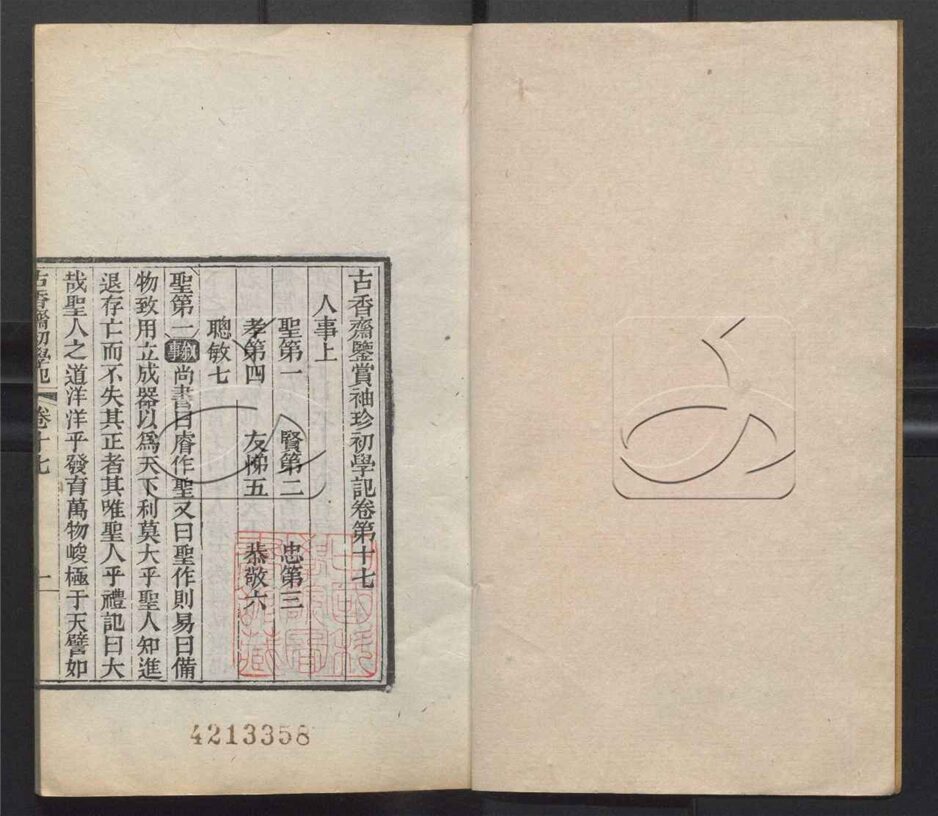 古香齋鑒賞袖珍初學記卷第十七
人事上
聖第一 賢第二 忠第三
孝第四 友悌五 恭敬六
聰敏七
聖第一 敘事 尚書曰睿作聖又曰聖作則易曰備
物致用立成器以爲天下利莫大乎聖人知進
退存亡而不失其正者其唯聖人乎禮記曰大
哉聖人之道洋洋乎發育萬物峻極于天譬如
古香齋初學記 卷十七 一
4213358